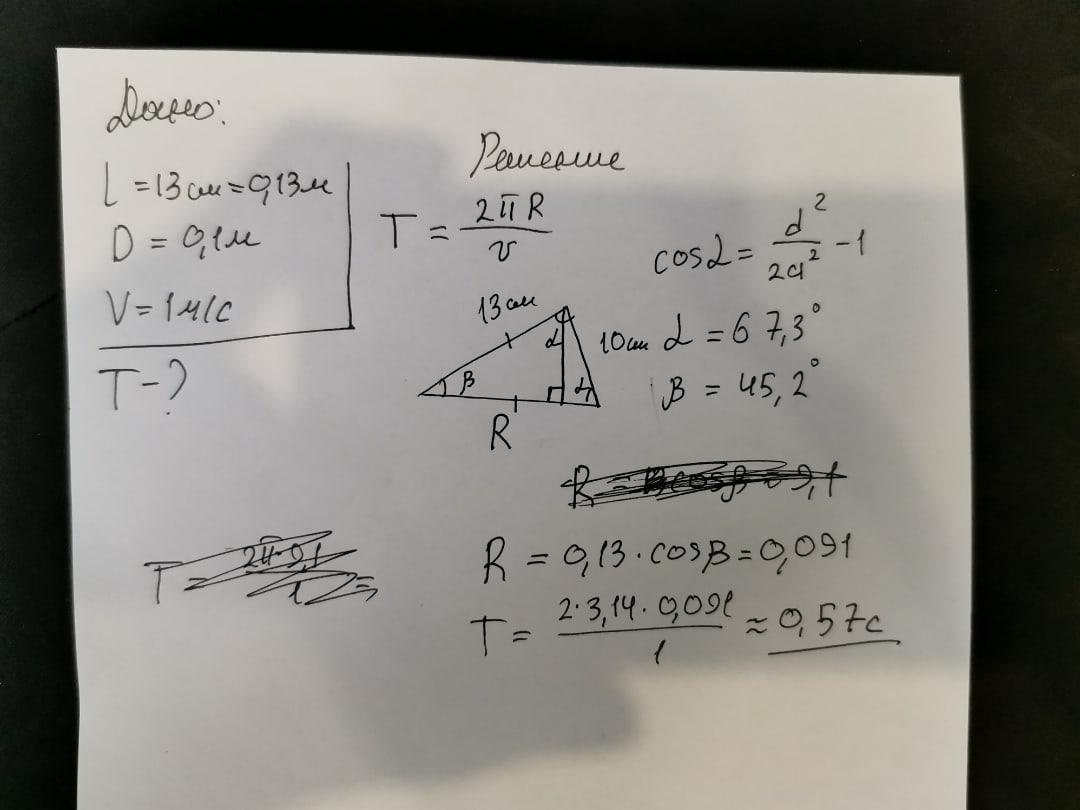 Дано:
L = 13 см = 0,13 м
D = 0,1 м
V = 1 м/с
T - ?
Решение
T = 2πR / v
cos α = d² / 2a² - 1
13 см
α
10 см
β
α
R
α = 67,3°
β = 45,2°
R = 0,13 · cos β = 0,091
T = 2 · 3,14 · 0,091 / 1 ≈ 0,57 с